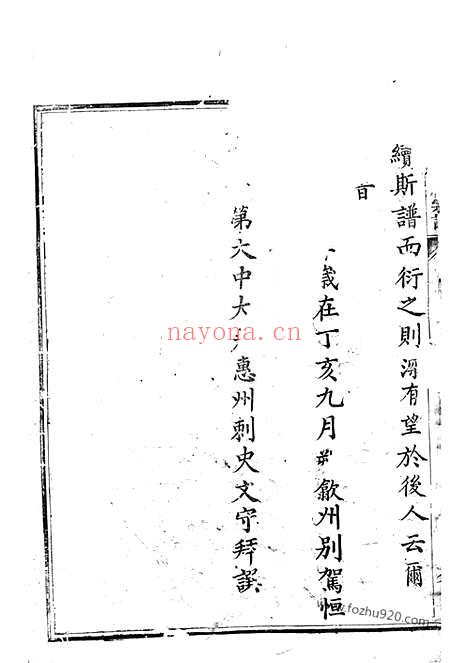 續斯譜而衍之則深有望於後人云爾
旹
歲在丁亥九月 歙州別駕恒
第六中大夫惠州刺史文守拜譔
nayona.cn
www.fozhu920.com